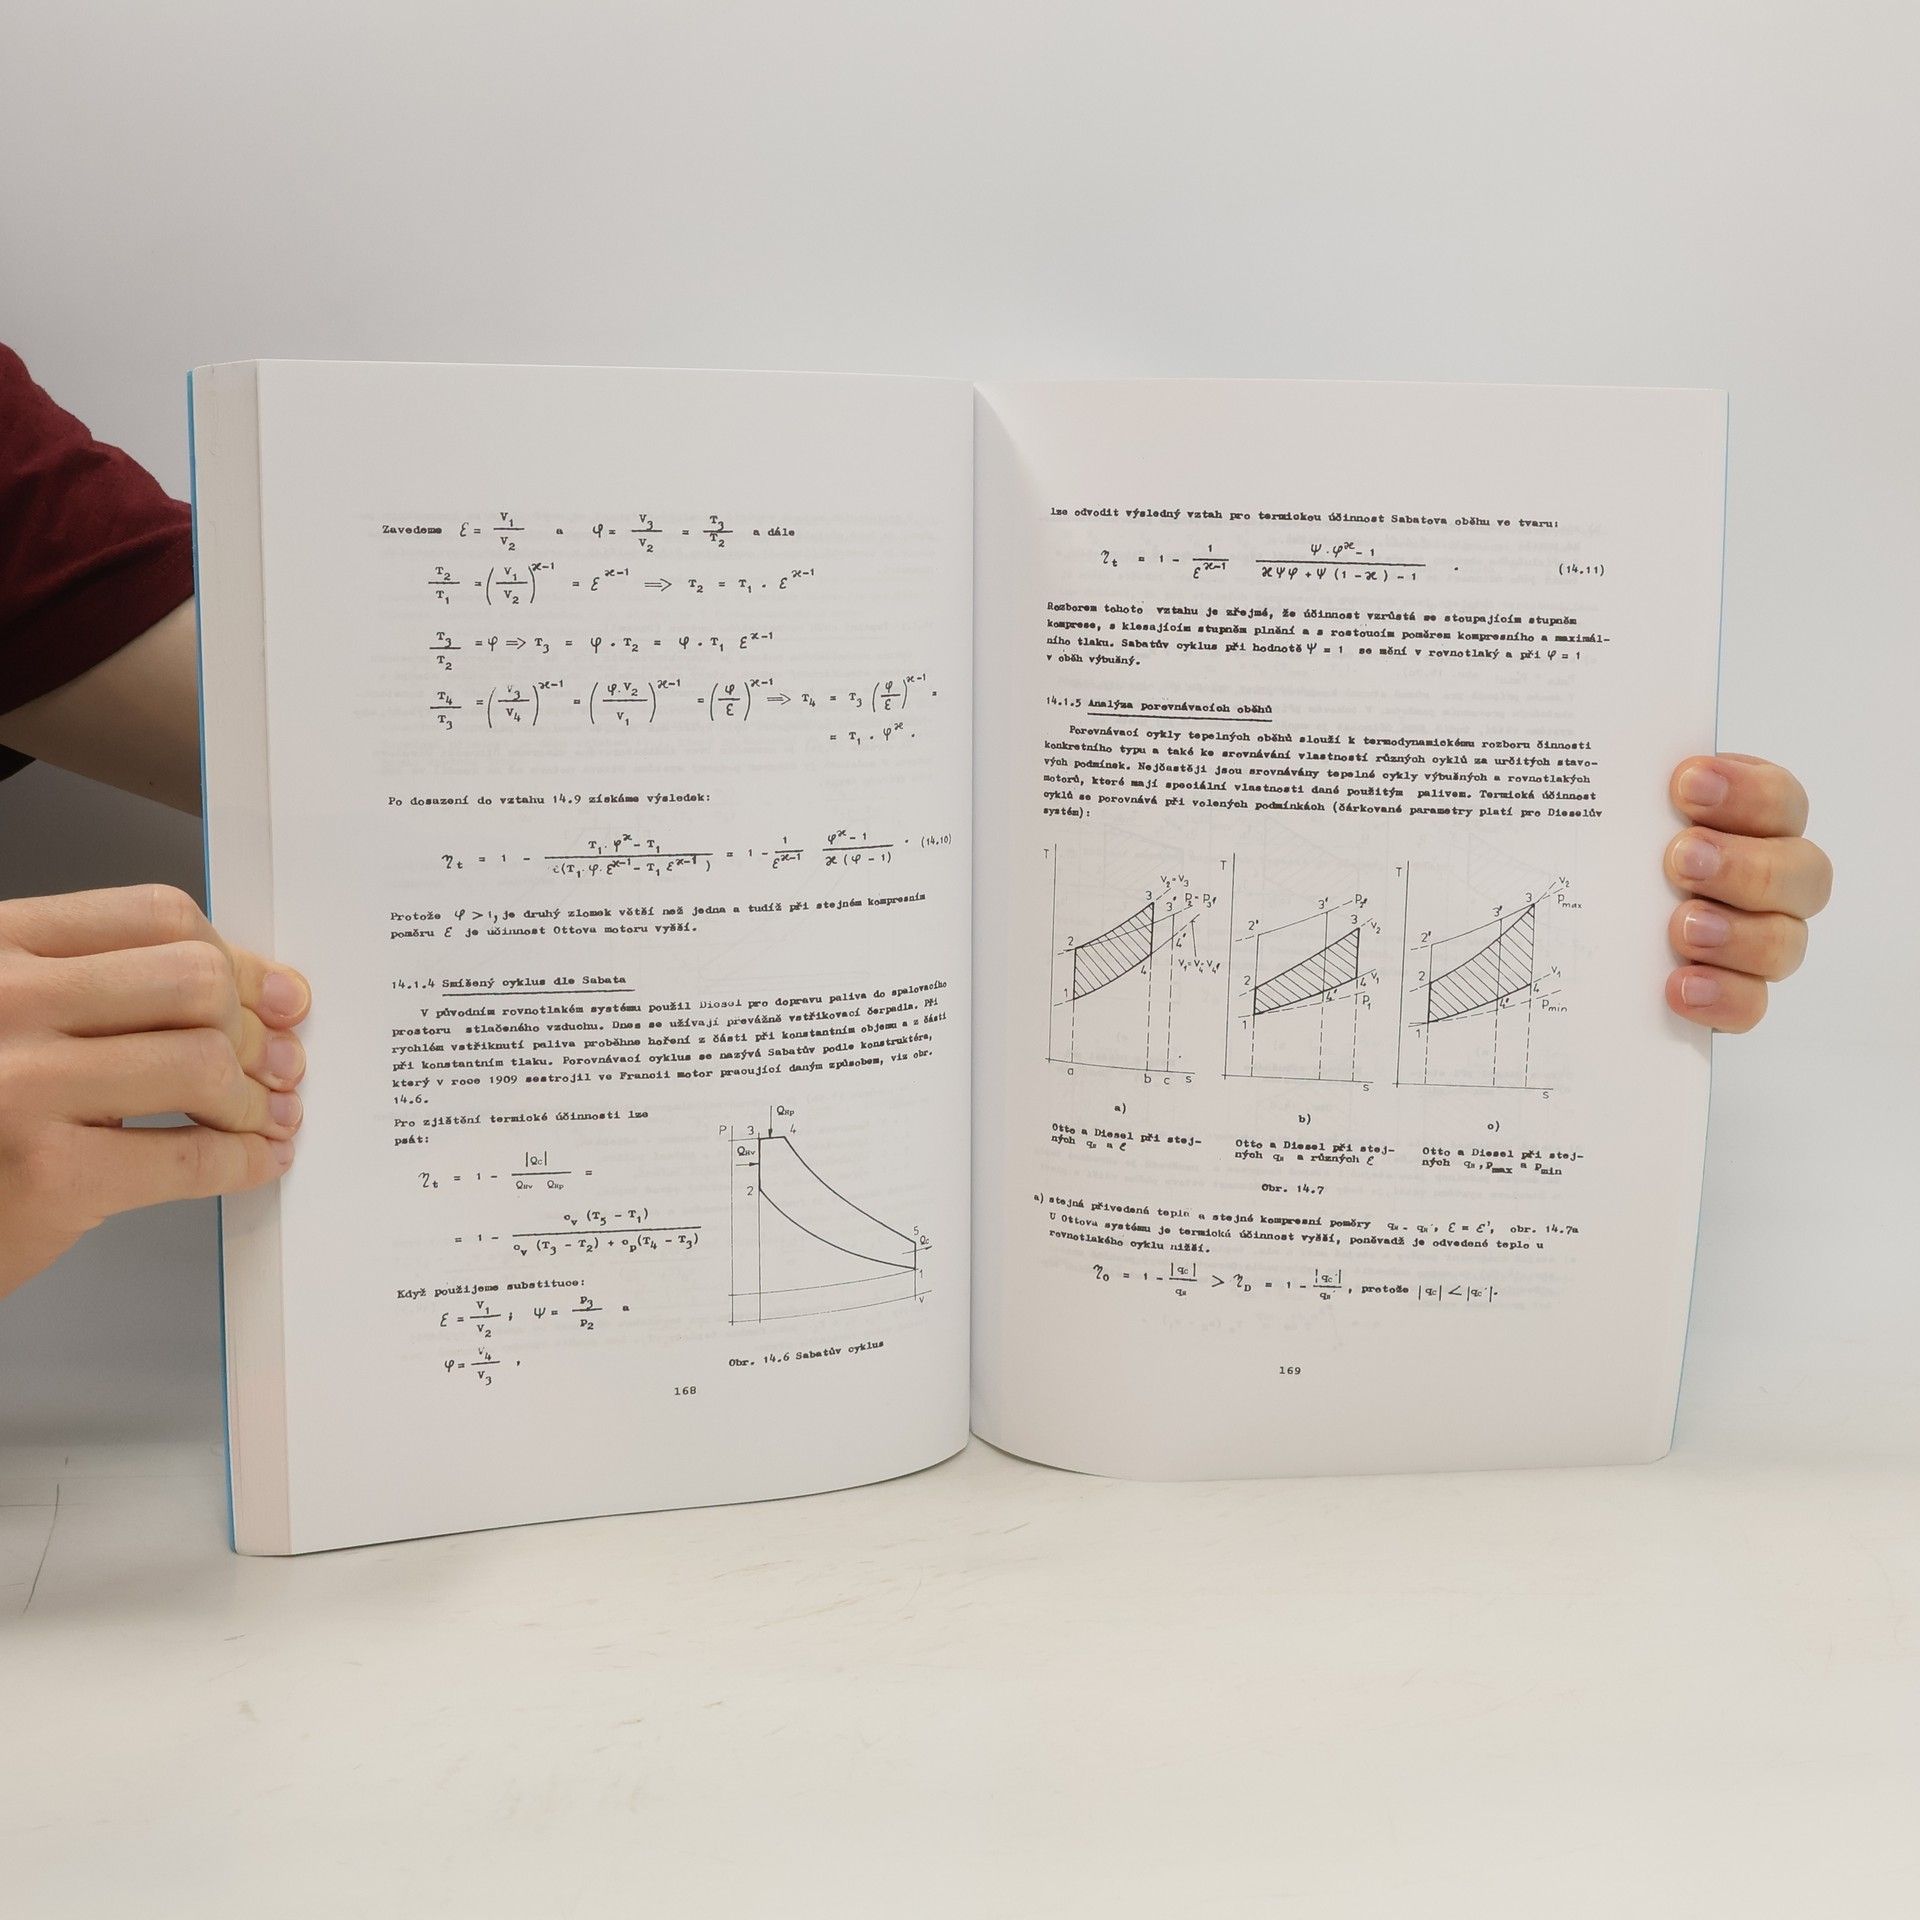 Zavedeme ε = V₁/V₂ a φ = V₃/V₂ = T₃/T₂ a dále
T₂/T₁ = (V₁/V₂)^(ϰ-1) = ε^(ϰ-1) ⟹ T₂ = T₁ . ε^(ϰ-1)
T₃/T₂ = φ ⟹ T₃ = φ . T₂ = φ . T₁ ε^(ϰ-1)
T₄/T₃ = (V₃/V₄)^(ϰ-1) = (φ.V₂/V₁)^(ϰ-1) = (φ/ε)^(ϰ-1) ⟹ T₄ = T₃ (φ/ε)^(ϰ-1) =
= T₁ . φ^ϰ .
Po dosazení do vztahu 14.9 získáme výsledek:
η_t = 1 - (T₁. φ^ϰ - T₁)/(ϰ(T₁.φ.ε^(ϰ-1) - T₁ ε^(ϰ-1))) = 1 - 1/ε^(ϰ-1) (φ^ϰ - 1)/(ϰ (φ - 1)) . (14.10)
Protože φ > 1, je druhý zlomek větší než jedna a tudíž při stejném kompresním
poměru ε je účinnost Ottova motoru vyšší.
14.1.4 Smíšený cyklus dle Sabata
V původním rovnotlakém systému použil Diesel pro dopravu paliva do spalovacího
prostoru stlačeného vzduchu. Dnes se užívají převážně vstřikovací čerpadla. Při
rychlém vstřiknutí paliva proběhne hoření z části při konstantním objemu a z části
při konstantním tlaku. Porovnávací cyklus se nazývá Sabatův podle konstruktéra,
který v roce 1909 sestrojil ve Francii motor pracující daným způsobem, viz obr.
14.6.
Pro zjištění termické účinnosti lze
psát:
η_t = 1 - |Q_C|/(Q_Hv Q_Hp) =
= 1 - c_v (T₅ - T₁)/(c_v (T₃ - T₂) + c_p(T₄ - T₃))
Když použijeme substituce:
ε = V₁/V₂ ; ψ = P₃/P₂ a
φ = V₄/V₃ ,
P 3 Q_Hp 4
Q_Hv
2
5
Q_C
1
v
Obr. 14.6 Sabatův cyklus
168
lze odvodit výsledný vztah pro termickou účinnost Sabatova oběhu ve tvaru:
η_t = 1 - 1/ε^(ϰ-1) (ψ.φ^ϰ - 1)/(ϰψφ + ψ (1 - ϰ) - 1) . (14.11)
Rozborem tohoto vztahu je zřejmé, že účinnost vzrůstá se stoupajícím stupněm
komprese, s klesajícím stupněm plnění a s rostoucím poměrem kompresního a maximál-
ního tlaku. Sabatův cyklus při hodnotě ψ = 1 se mění v rovnotlaký a při φ = 1
v oběh výbušný.
14.1.5 Analýza porovnávacích oběhů
Porovnávací cykly tepelných oběhů slouží k termodynamickému rozboru činnosti
konkretního typu a také ke srovnávání vlastností různých cyklů za určitých stavo-
vých podmínek. Nejčastěji jsou srovnávány tepelné cykly výbušných a rovnotlakých
motorů, které mají speciální vlastnosti dané použitým palivem. Termická účinnost
cyklů se porovnává při volených podmínkách (čárkované parametry platí pro Dieselův
systém):
T V₂=V₃ 3 3' P₂=P₃' 2 4' 4 V₁=V₄=V₄' 1 a b c s
T 2' 3' P₃' 3 V₂ 2 4 V₁ 4' P₁ 1 s
T 2' 3' 3 V₂ P_max 2 V₁ 4 4' P_min 1 s
a) b) c)
Otto a Diesel při stej-
ných q_H a ε
Otto a Diesel při stej-
ných q_H a různých ε
Otto a Diesel při stej-
ných q_H, P_max a P_min
Obr. 14.7
a) stejná přivedená tepla a stejné kompresní poměry q_H = q_H', ε = ε', obr. 14.7a
U Ottova systému je termická účinnost vyšší, poněvadž je odvedené teplo u
rovnotlakého cyklu nižší.
η_O = 1 - |q_C|/q_H > η_D = 1 - |q_C'|/q_H' , protože |q_C| < |q_C'|.
169